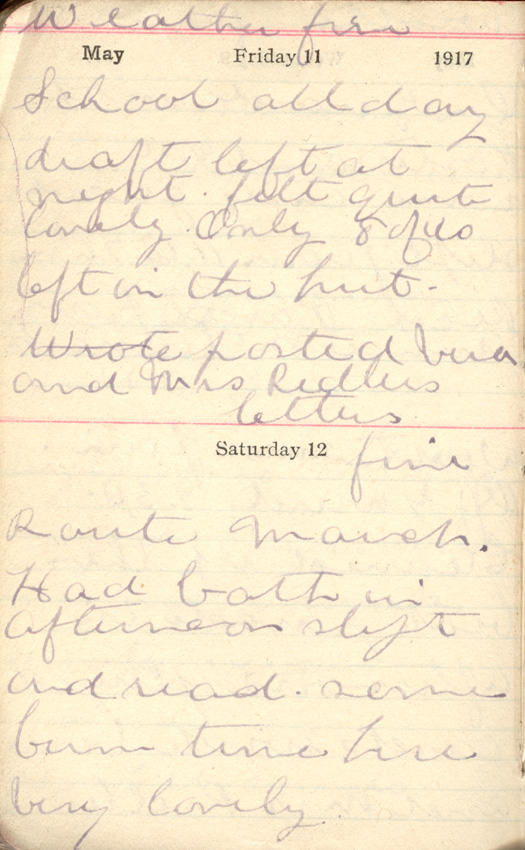 Weather fine
May Friday 11 1917
School all day
draft left at
night. felt quite
lonely. Only 8 of us
left in the hut.
Wrote posted Vera
and Mrs Redlers
letters
Saturday 12
fine
Route March.
Had bath in
afternoon slept
and read. some
bum time here
very lonely.